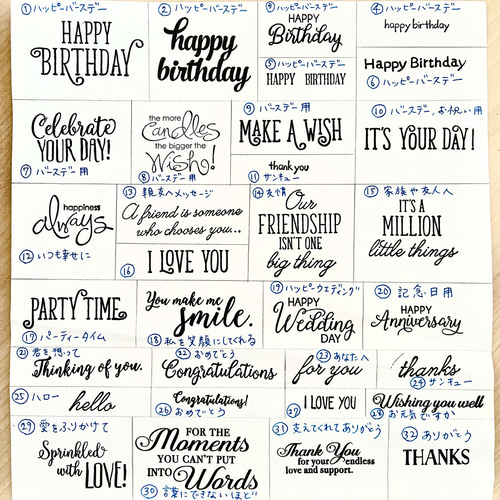 ①ハッピーバースデー
HAPPY
BIRTHDAY
②ハッピーバースデー
happy
birthday
③ハッピーバースデー
HAPPY
Birthday
④ハッピーバースデー
happy birthday
⑤ハッピーバースデー
HAPPY BIRTHDAY
Happy Birthday
⑥ハッピーバースデー
Celebrate
YOUR DAY!
⑦バースデー用
the more
Candles
the bigger the
Wish!
⑧バースデー用
⑨バースデー用
MAKE A WISH
⑩バースデー、お祝い用
IT'S YOUR DAY!
thank you
⑪サンキュー
happiness
always
⑫いつも幸せに
⑬親友へメッセージ
A friend is someone
who chooses you...
⑭友情
Our
FRIENDSHIP
ISN'T ONE
big thing
⑮家族や友人へ
IT'S A
MILLION
little things
⑯
I LOVE YOU
PARTY TIME
⑰パーティータイム
You make me
smile.
⑱私を笑顔にしてくれる
⑲ハッピーウエディング
HAPPY
Wedding
DAY
⑳記念日用
HAPPY
Anniversary
㉑君を想って
Thinking of you.
㉒おめでとう
Congratulations
㉓あなたへ
for you
thanks
サンキュー
㉕ハロー
hello
Congratulations!
㉖おめでとう
㉗
I LOVE YOU
Wishing you well
お元気ですか
㉙愛をふりかけて
Sprinkled
with LOVE!
FOR THE
Moments
YOU CAN'T PUT
INTO Words
㉚言葉にできないほど
㉛支えてくれてありがとう
Thank You
for your endless
love and support.
㉜ありがとう
THANKS